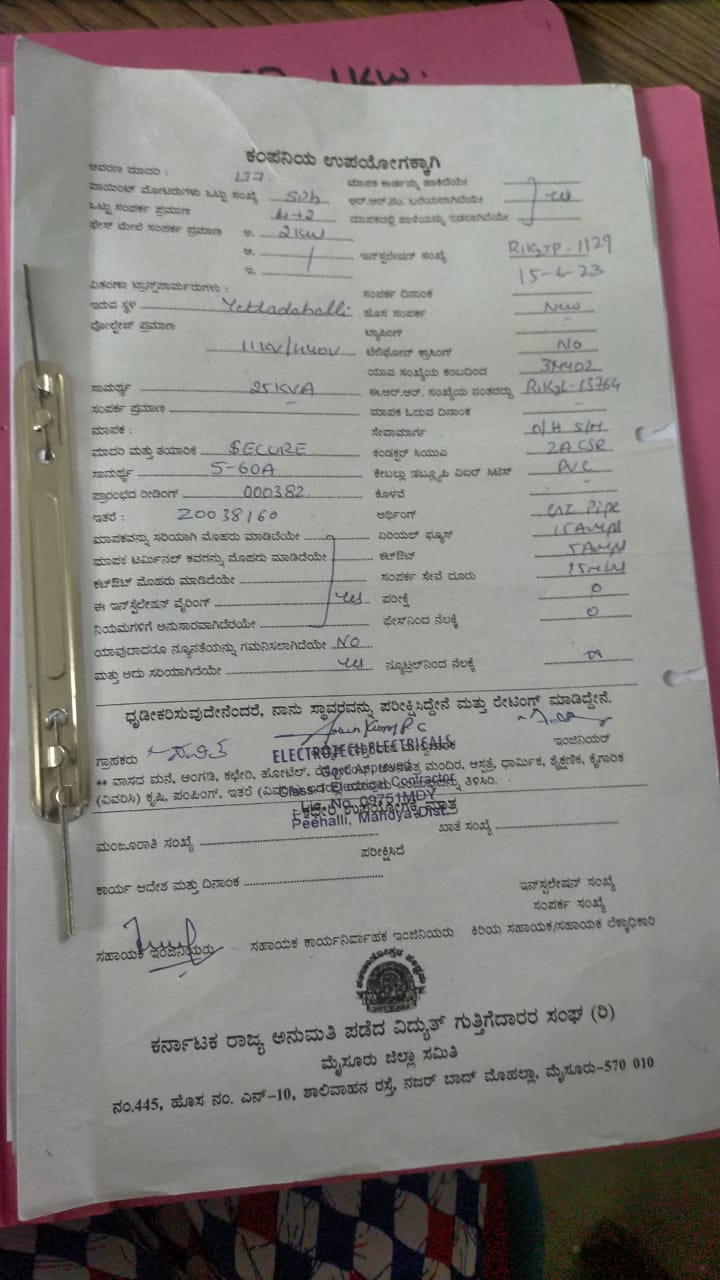 ಕಂಪನಿಯ ಉಪಯೋಗಕ್ಕಾಗಿ
ಆವರಣ ಮಾದರಿ :
ಪಾಯಿಂಟ್ ಮೋಟರುಗಳು ಒಟ್ಟು ಸಂಖ್ಯೆ
ಒಟ್ಟು ಸಂಪರ್ಕ ಪ್ರಮಾಣ 4+2
ಫೇಸ್ ಮೇಲೆ ಸಂಪರ್ಕ ಪ್ರಮಾಣ ಅ. 2KW
ಆ.
ಇ.
ಮಾಪಕ ಕಾರ್ಡನ್ನು ಹಾಕಿದೆಯೇ
ಆರ್.ಆರ್.ನಂ. ಬರೆಯಲಾಗಿದೆಯೇ yes
ಮಾಪಕದಲ್ಲಿ ಹಾಳೆಯನ್ನು ಇಡಲಾಗಿದೆಯೇ
ಇನ್ಸ್ಟಲೇಷನ್ ಸಂಖ್ಯೆ RIKGTP-1129
15-6-23
ವಿತರಣಾ ಟ್ರಾನ್ಸ್‌ಫಾರ್ಮರುಗಳು :
ಇರುವ ಸ್ಥಳ Yettadahalli
ವೋಲ್ಟೇಜ್ ಪ್ರಮಾಣ
11KV/440V
ಸಾಮರ್ಥ್ಯ 25KVA
ಸಂಪರ್ಕ ಪ್ರಮಾಣ -
ಮಾಪಕ :
ಮಾದರಿ ಮತ್ತು ತಯಾರಿಕೆ SECURE
ಸಾಮರ್ಥ್ಯ 5-60A
ಪ್ರಾರಂಭದ ರೀಡಿಂಗ್ 000382
ಇತರೆ : 20038160
ಮಾಪಕವನ್ನು ಸರಿಯಾಗಿ ಮೊಹರು ಮಾಡಿದೆಯೇ
ಮಾಪಕ ಟರ್ಮಿನಲ್ ಕವರನ್ನು ಮೊಹರು ಮಾಡಿದೆಯೇ
ಕಟ್‌ಔಟ್ ಮೊಹರು ಮಾಡಿದೆಯೇ
ಈ ಇನ್ಸ್ಟಲೇಷನ್ ವೈರಿಂಗ್ yes
ನಿಯಮಗಳಿಗೆ ಅನುಸಾರವಾಗಿದೆರಯೇ
ಯಾವುದಾದರೂ ನ್ಯೂನತೆಯನ್ನು ಗಮನಿಸಲಾಗಿದೆಯೇ NO
ಮತ್ತು ಅದು ಸರಿಯಾಗಿದೆಯೇ yes
ಸಂಪರ್ಕ ದಿನಾಂಕ
ಹೊಸ ಸಂಪರ್ಕ New
ಟ್ಯಾಪಿಂಗ್ -
ಟೆಲಿಫೋನ್ ಕ್ರಾಸಿಂಗ್ NO
ಯಾವ ಸಂಖ್ಯೆಯ ಕಂಬದಿಂದ
ಈ.ಆರ್.ಆರ್. ಸಂಖ್ಯೆಯ ನಂತರದ್ದು RIKGL-13764
ಮಾಪಕ ಓದುವ ದಿನಾಂಕ -
ಸೇವಾಮಾರ್ಗ O/H S/M
ಕಂಡಕ್ಟರ್ ಸಿಯುಎ 2ACSR
ಕೇಬಲ್ಲು ಡಬ್ಲ್ಯೂಪಿ ವಿಐರ್ PVC
ಕೊಳವೆ -
ಅರ್ಥಿಂಗ್ GI Pipe
ಏರಿಯಲ್ ಫ್ಯೂಸ್ 15AMP
ಕಟ್‌ಔಟ್ 5AMP
ಸಂಪರ್ಕ ಸೇವೆ ದೂರು
ಪರೀಕ್ಷೆ 0
ಫೇಸ್‌ನಿಂದ ನೆಲಕ್ಕೆ 0
ನ್ಯೂಟ್ರಲ್‌ನಿಂದ ನೆಲಕ್ಕೆ
ಧೃಡೀಕರಿಸುವುದೇನೆಂದರೆ, ನಾನು ಸ್ಥಾವರವನ್ನು ಪರೀಕ್ಷಿಸಿದ್ದೇನೆ ಮತ್ತು ರೇಟಿಂಗ್ ಮಾಡಿದ್ದೇನೆ.
ಗ್ರಾಹಕರು
ಇಂಜಿನಿಯರ್
ELECTROTECH ELECTRICALS
Govt. Approved
Class-I Electrical Contractor
Lic. No. 09751MDY
Peehalli, Mandya Dist.
** ವಾಸದ ಮನೆ, ಅಂಗಡಿ, ಕಛೇರಿ, ಹೋಟೆಲ್, ಮಂದಿರ, ಆಸ್ಪತ್ರೆ, ಧಾರ್ಮಿಕ, ಶೈಕ್ಷಣಿಕ, ಕೈಗಾರಿಕೆ
(ವಿವರಿಸಿ) ಕೃಷಿ, ಪಂಪಿಂಗ್, ಇತರೆ ತಿಳಿಸಿರಿ.
ಕಛೇರಿ ಉಪಯೋಗಕ್ಕೆ ಮಾತ್ರ
ಮಂಜೂರಾತಿ ಸಂಖ್ಯೆ
ಖಾತೆ ಸಂಖ್ಯೆ
ಪರೀಕ್ಷಿಸಿದೆ
ಕಾರ್ಯ ಆದೇಶ ಮತ್ತು ದಿನಾಂಕ
ಇನ್ಸ್ಟಲೇಷನ್ ಸಂಖ್ಯೆ
ಸಂಪರ್ಕ ಸಂಖ್ಯೆ
ಸಹಾಯಕ ಇಂಜಿನಿಯರು ಸಹಾಯಕ ಕಾರ್ಯನಿರ್ವಾಹಕ ಇಂಜಿನಿಯರು ಕಿರಿಯ ಸಹಾಯಕ/ಸಹಾಯಕ ಲೆಕ್ಕಾಧಿಕಾರಿ
ಕರ್ನಾಟಕ ರಾಜ್ಯ ಅನುಮತಿ ಪಡೆದ ವಿದ್ಯುತ್ ಗುತ್ತಿಗೆದಾರರ ಸಂಘ (ರಿ)
ಮೈಸೂರು ಜಿಲ್ಲಾ ಸಮಿತಿ
ನಂ.445, ಹೊಸ ನಂ. ಎನ್-10, ಶಾಲಿವಾಹನ ರಸ್ತೆ, ನಜರ್ ಬಾದ್ ಮೊಹಲ್ಲಾ, ಮೈಸೂರು-570 010